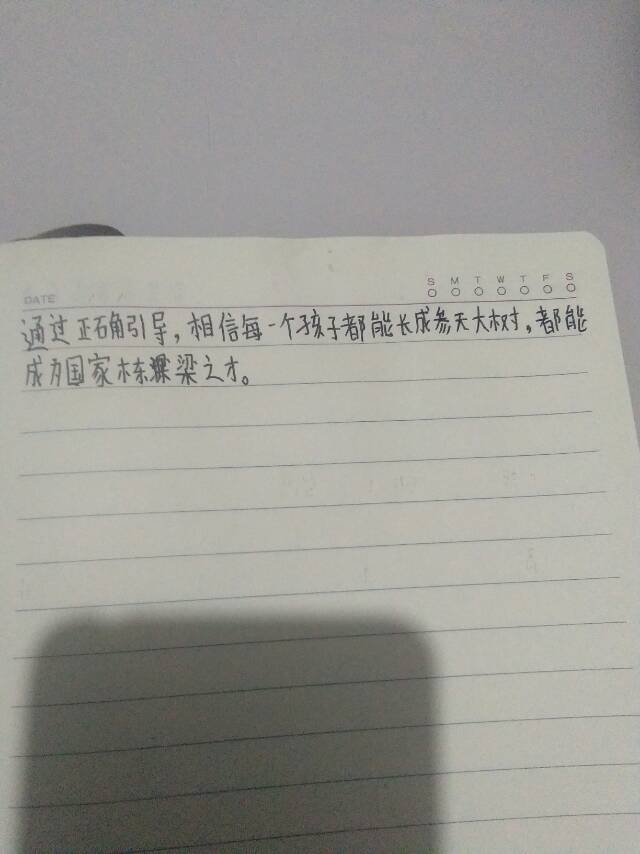 S M T W T F S
DATE
通过正确引导，相信每一个孩子都能长成参天大树，都能
成为国家栋梁之才。